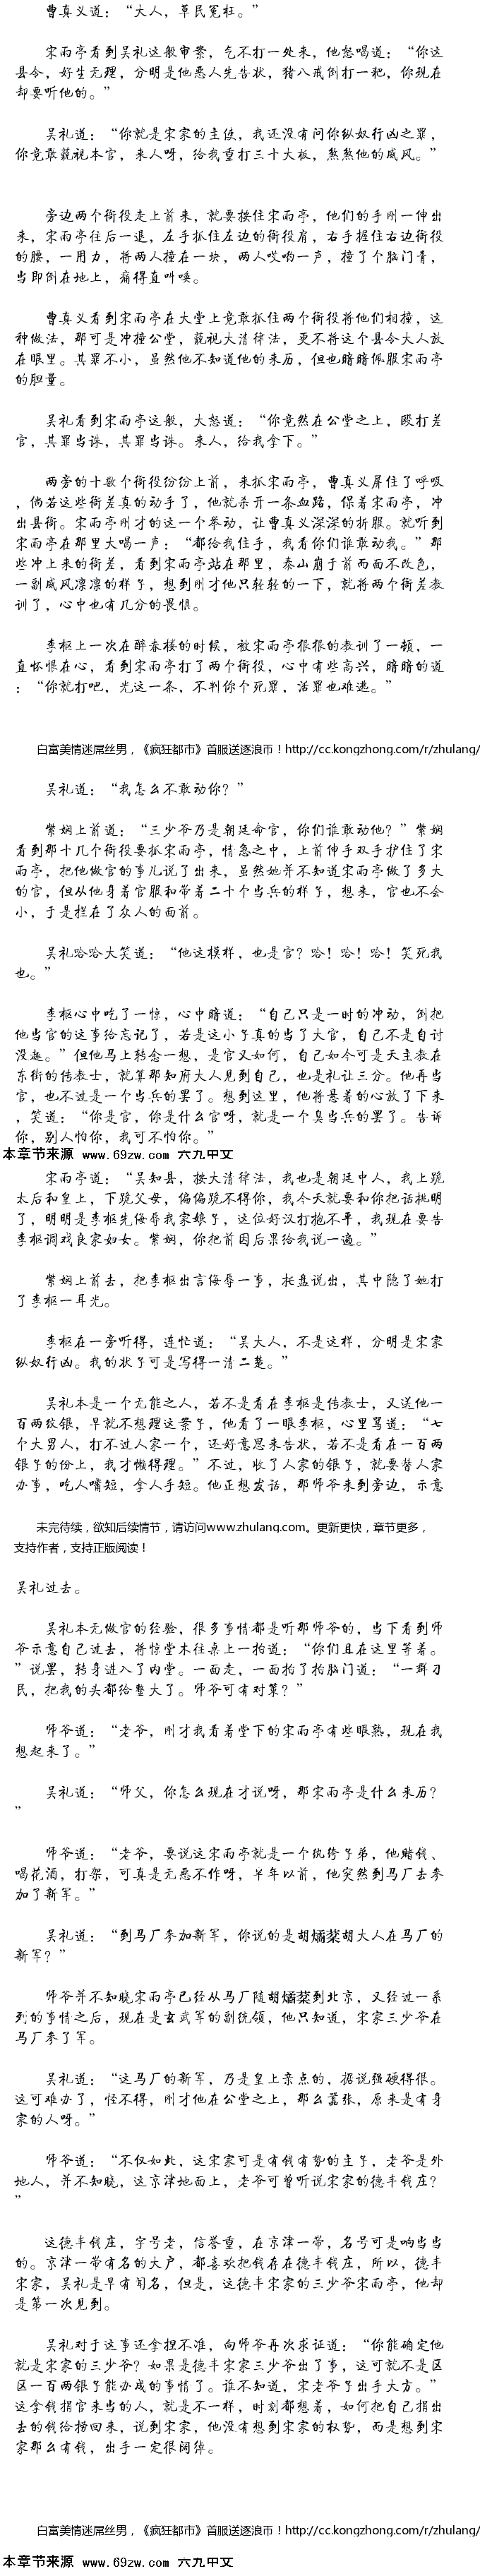 曹真义道：“大人，草民冤枉。”
宋雨亭看到吴礼这般审案，气不打一处来，他怒喝道：“你这
县令，好生无理，分明是他恶人先告状，猪八戒倒打一耙，你现在
却要听他的。”
吴礼道：“你就是宋家的主使，我还没有问你纵奴行凶之罪，
你竟敢藐视本官，来人呀，给我重打三十大板，煞煞他的威风。”
旁边两个衙役走上前来，就要按住宋雨亭，他们的手刚一伸出
来，宋雨亭往后一退，左手抓住左边的衙役肩，右手握住右边衙役
的腰，一用力，将两人撞在一块，两人哎哟一声，撞了个脑门青，
当即倒在地上，痛得直叫唤。
曹真义看到宋雨亭在大堂上竟敢抓住两个衙役将他们相撞，这
种做法，那可是冲撞公堂，藐视大清律法，更不将这个县令大人放
在眼里。其罪不小，虽然他不知道他的来历，但也暗暗佩服宋雨亭
的胆量。
吴礼看到宋雨亭这般，大怒道：“你竟然在公堂之上，殴打差
官，其罪当诛，其罪当诛。来人，给我拿下。”
两旁的十数个衙役纷纷上前，来抓宋雨亭，曹真义屏住了呼吸
，倘若这些衙差真的动手了，他就杀开一条血路，保着宋雨亭，冲
出县衙。宋雨亭刚才的这一个举动，让曹真义深深的折服。就听到
宋雨亭在那里大喝一声：“都给我住手，我看你们谁敢动我。”那
些冲上来的衙差，看到宋雨亭站在那里，泰山崩于前而面不改色，
一副威风凛凛的样子，想到刚才他只轻轻的一下，就将两个衙差教
训了，心中也有几分的畏惧。
李枢上一次在醉春楼的时候，被宋雨亭狠狠的教训了一顿，一
直怀恨在心，看到宋雨亭打了两个衙役，心中有些高兴，暗暗的道
：“你就打吧，光这一条，不判你个死罪，活罪也难逃。”
白富美情迷屌丝男，《疯狂都市》首服送逐浪币！http://cc.kongzhong.com/r/zhulang/
吴礼道：“我怎么不敢动你？”
紫娴上前道：“三少爷乃是朝廷命官，你们谁敢动他？”紫娴
看到那十几个衙役要抓宋雨亭，情急之中，上前伸手双手护住了宋
雨亭，把他做官的事儿说了出来，虽然她并不知道宋雨亭做了多大
的官，但从他身着官服和带着二十个当兵的样子，想来，官也不会
小，于是拦在了众人的面前。
吴礼哈哈大笑道：“他这模样，也是官？哈！哈！哈！笑死我
也。”
李枢心中吃了一惊，心中暗道：“自己只是一时的冲动，倒把
他当官的这事给忘记了，若是这小子真的当了大官，自己不是自讨
没趣。”但他马上转念一想，是官又如何，自己如今可是天主教在
东街的传教士，就算那知府大人见到自己，也是礼让三分。他再当
官，也不过是一个当兵的罢了。想到这里，他将悬着的心放了下来
，笑道：“你是官，你是什么官呀，就是一个臭当兵的罢了。告诉
你，别人怕你，我可不怕你。”
本章节来源 www.69zw.com 六九中文
宋雨亭道：“吴知县，按大清律法，我也是朝廷中人，我上跪
太后和皇上，下跪父母，偏偏跪不得你，我今天就要和你把话挑明
了，明明是李枢先侮辱我家娘子，这位好汉打抱不平，我现在要告
李枢调戏良家妇女。紫娴，你把前因后果给我说一遍。”
紫娴上前去，把李枢出言侮辱一事，托盘说出，其中隐了她打
了李枢一耳光。
李枢在一旁听得，连忙道：“吴大人，不是这样，分明是宋家
纵奴行凶。我的状子可是写得一清二楚。”
吴礼本是一个无能之人，若不是看在李枢是传教士，又送他一
百两纹银，早就不想理这案子，他看了一眼李枢，心里骂道：“七
个大男人，打不过人家一个，还好意思来告状，若不是看在一百两
银子的份上，我才懒得理。”不过，收了人家的银子，就要替人家
办事，吃人嘴短，拿人手短。他正想发话，那师爷来到旁边，示意
未完待续，欲知后续情节，请访问www.zhulang.com。更新更快，章节更多，
支持作者，支持正版阅读！
吴礼过去。
吴礼本无做官的经验，很多事情都是听那师爷的，当下看到师
爷示意自己过去，将惊堂木往桌上一拍道：“你们且在这里等着。
”说罢，转身进入了内堂。一面走，一面拍了拍脑门道：“一群刁
民，把我的头都给整大了。师爷可有对策？”
师爷道：“老爷，刚才我看着堂下的宋雨亭有些眼熟，现在我
想起来了。”
吴礼道：“师父，你怎么现在才说呀，那宋雨亭是什么来历？
”
师爷道：“老爷，要说这宋雨亭就是一个纨绔子弟，他赌钱、
喝花酒，打架，可真是无恶不作呀，半年以前，他突然到马厂去参
加了新军。”
吴礼道：“到马厂参加新军，你说的是胡燏棻胡大人在马厂的
新军？”
师爷并不知晓宋雨亭已经从马厂随胡燏棻到北京，又经过一系
列的事情之后，现在是玄武军的副统领，他只知道，宋家三少爷在
马厂参了军。
吴礼道：“这马厂的新军，乃是皇上亲点的，据说强硬得很。
这可难办了，怪不得，刚才他在公堂之上，那么嚣张，原来是有身
家的人呀。”
师爷道：“不仅如此，这宋家可是有钱有势的主子，老爷是外
地人，并不知晓，这京津地面上，老爷可曾听说宋家的德丰钱庄？
”
这德丰钱庄，字号老，信誉重，在京津一带，名号可是响当当
的。京津一带有名的大户，都喜欢把钱存在德丰钱庄，所以，德丰
宋家，吴礼是早有闻名，但是，这德丰宋家的三少爷宋雨亭，他却
是第一次见到。
吴礼对于这事还拿捏不准，向师爷再次求证道：“你能确定他
就是宋家的三少爷？如果是德丰宋家三少爷出了事，这可就不是区
区一百两银子能办成的事情了。谁不知道，宋老爷子出手大方。”
这拿钱捐官来当的人，就是不一样，时刻都想着，如何把自己捐出
去的钱给捞回来，说到宋家，他没有想到宋家的权势，而是想到宋
家那么有钱，出手一定很阔绰。
白富美情迷屌丝男，《疯狂都市》首服送逐浪币！http://cc.kongzhong.com/r/zhulang/
本章节来源 www.69zw.com 六九中文